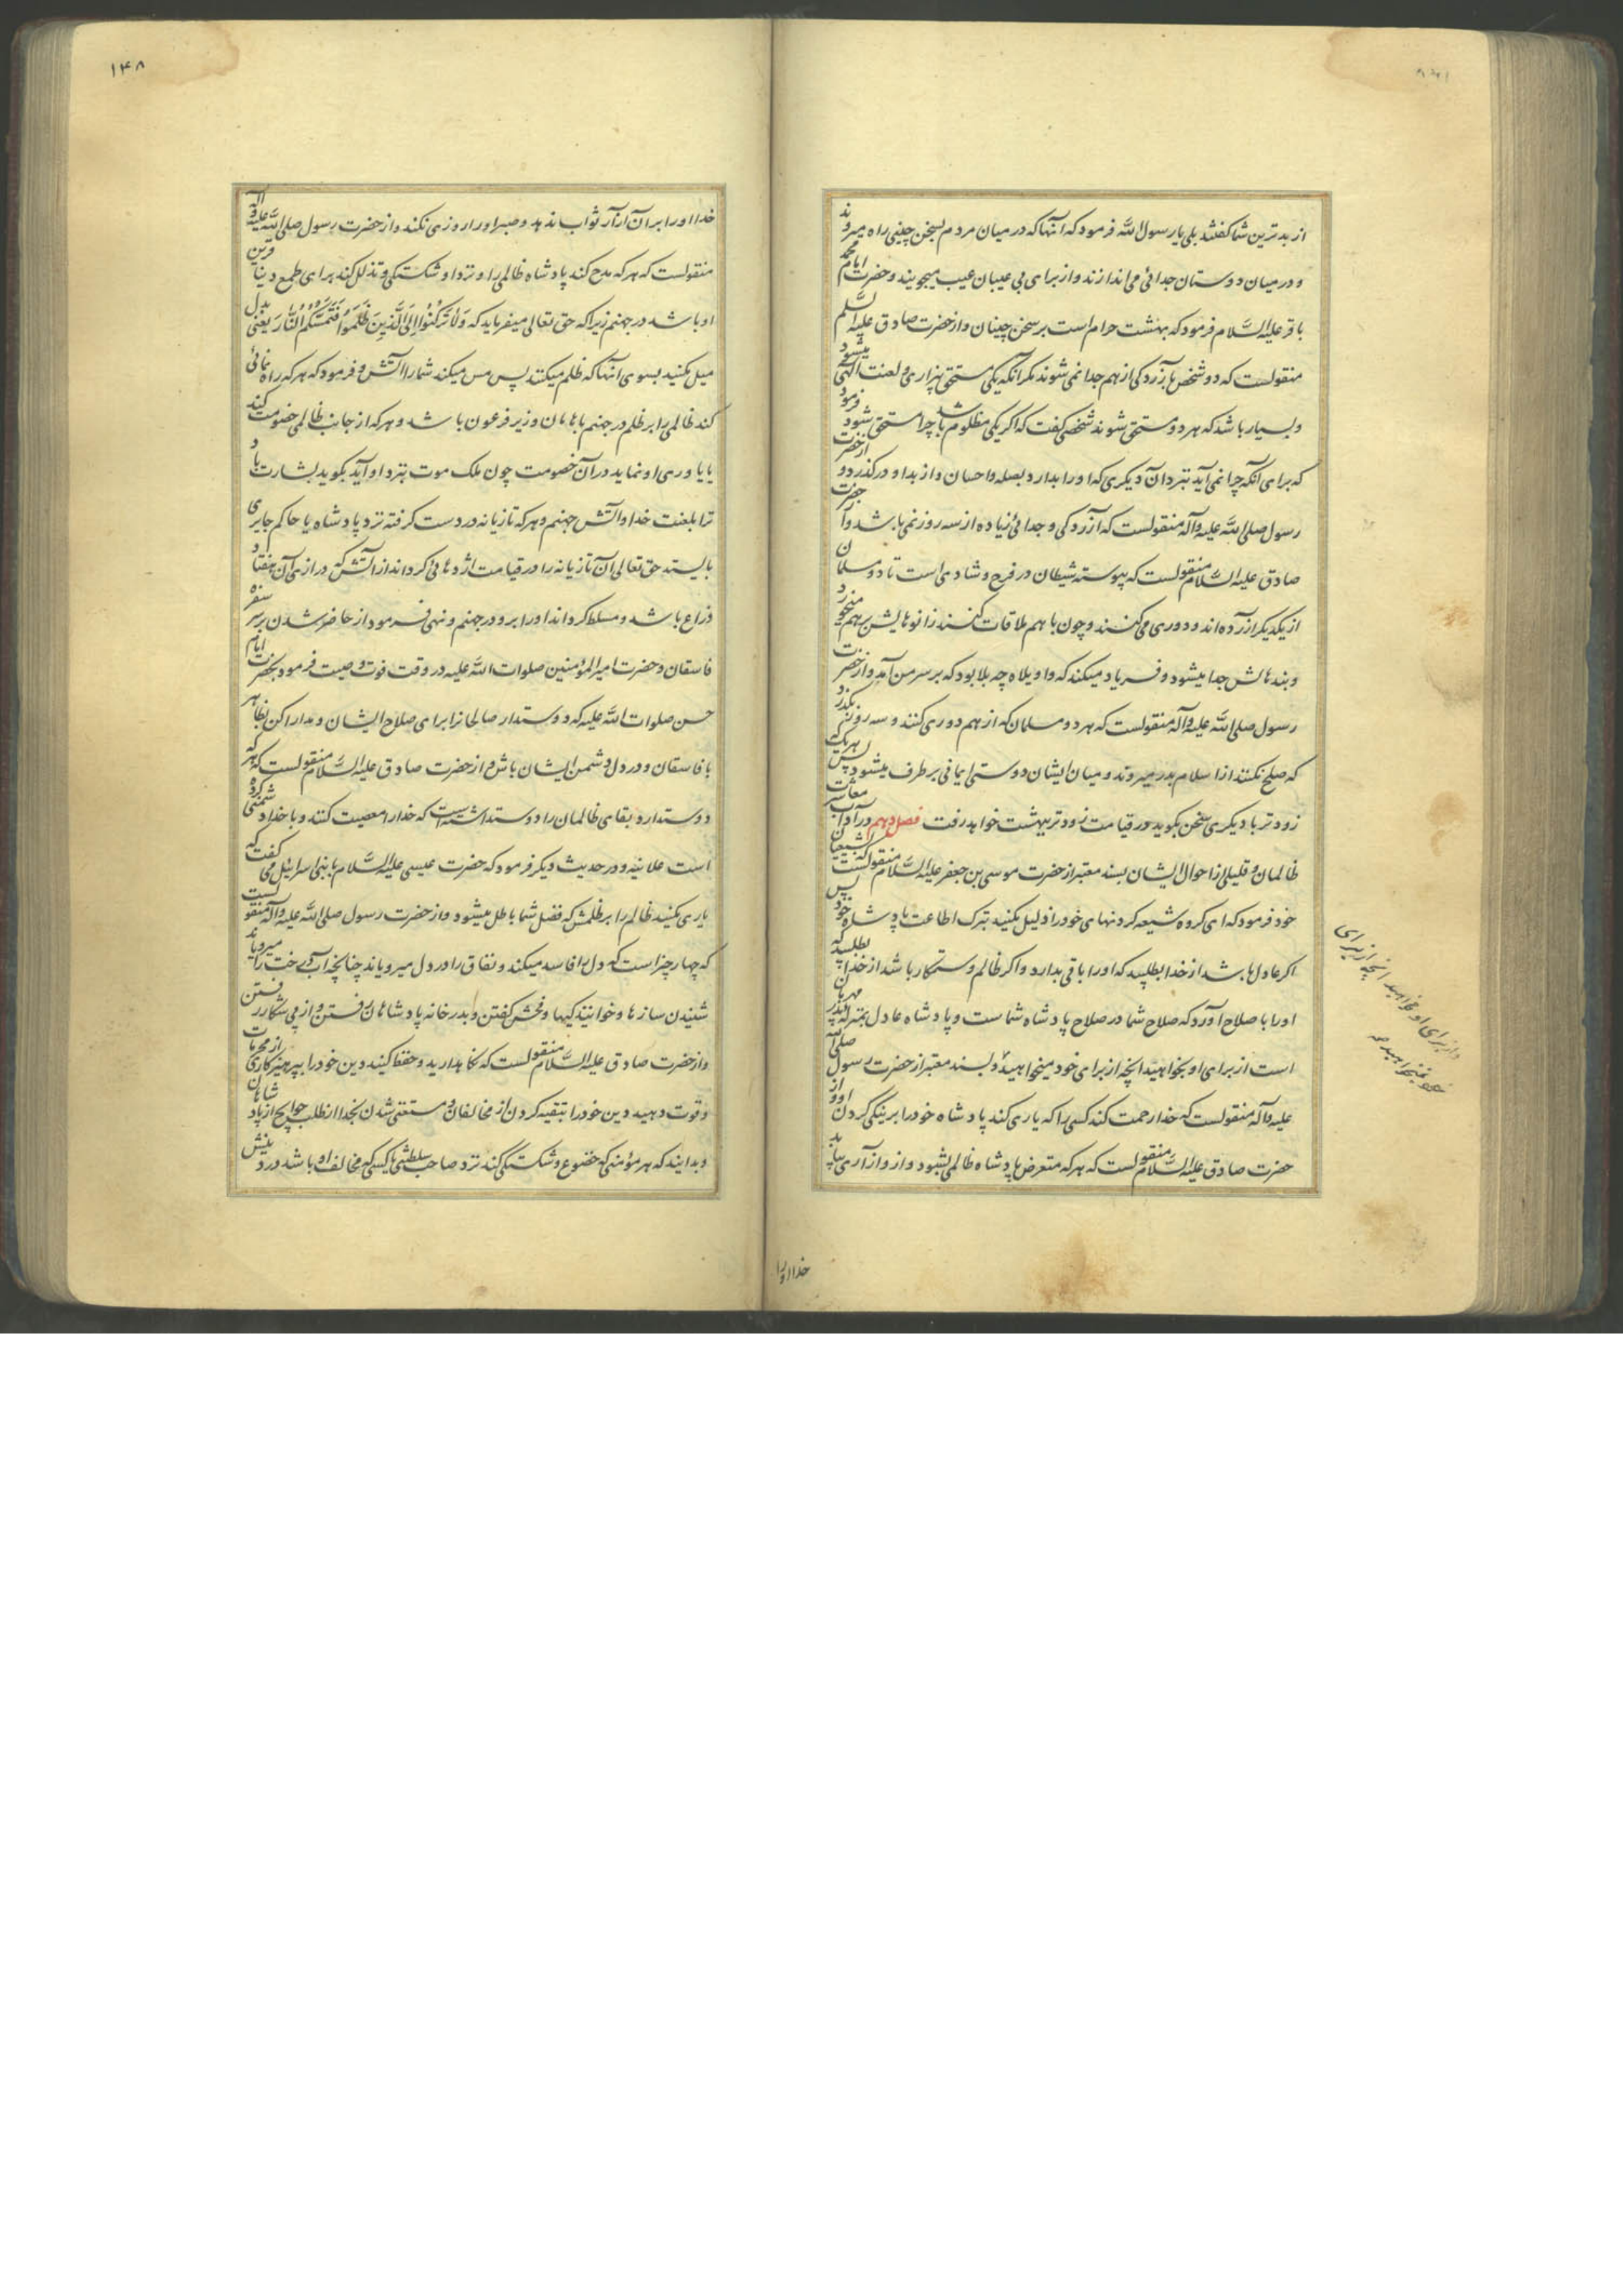 از بدترین شما گفتند بلی یا رسول الله فرمود که آنها که در میان مردم بسخن چینی راه میروند
و در میان دوستان جدائی می اندازند و از برای بی عیبان عیب میجویند و حضرت امام محمد
باقر علیه السّلام فرمود که بهشت حرام است بر سخن چینان و از حضرت صادق علیه السّلم
منقولست که دو شخص بآزردکی از هم جدا نمی شوند مکر آنکه یکی مستحق بیزاری و لعنت الهی میشود
و بسیار باشد که هر دو مستحق شوند شخصی کفت که اکر یکی مظلوم باشد چرا مستحق شود فرمود
که برای آنکه چرا نمی آید بنزد آن دیکری که او را بدارد بصله و احسان و از بدا و درکذرد و از حضرت
رسول صلی الله علیه وآله منقولست که آزردکی و جدائی زیاده از سه روز نمی باشد و از حضرت
صادق علیه السّلام منقولست که پیوسته شیطان در فرح و شادی است تا دو مسلمان
از یکدیکر آزرده اند و دوری می کنند و چون با هم ملاقات کنند زانوهایش بر هم میخورد
و بندهایش جدا میشود و فریاد میکند که واویلاه چه بلا بود که بر سر من آمد و از حضرت
رسول صلی الله علیه وآله منقولست که هر دو مسلمان که از هم دوری کنند و سه روز بکذرد
که صلح نکنند از اسلام بدر میروند و میان ایشان دوستی ایمانی بر طرف میشود پس هر یک که
زودتر با دیکری سخن بکوید در قیامت زودتر ببهشت خواهد رفت فصل دهم در آداب معاشرت
ظالمان و قلیلی از احوال ایشان بسند معتبر از حضرت موسی بن جعفر علیه السّلام منقولست که بشیعیان
خود فرمود که ای کروه شیعه کردنهای خود را ذلیل مکنید بترک اطاعت پادشاه خود پس
اکر عادل باشد از خدا بطلبید که او را باقی بدارد و اکر ظالم و ستمکار باشد از خدا بطلبید که
او را با صلاح آورد که صلاح شما در صلاح پادشاه شماست و پادشاه عادل بمنزله پدر مهربان
است از برای او بخواهید انچه از برای خود میخواهید و بسند معتبر از حضرت رسول صلی الله
علیه وآله منقولست که خدا رحمت کند کسی را که یاری کند پادشاه خود را بر نیکی کردن او و از
حضرت صادق علیه السّلام منقولست که هر که متعرض پادشاه ظالمی بشود و از و آزاری بیابد
و از برای او مخواهید انچه از برای
خود نمیخواهید
خدا او را
۱۴۸
خدا او را بر آن آزار ثواب ندهد و صبر او را روزی نکند و از حضرت رسول صلی الله علیه و آله
منقولست که هر که مدح کند پادشاه ظالمی را و نزد او شکستکی و تذلل کند برای طمع دنیا قرین
او باشد در جهنم زیرا که حق تعالی میفرماید که وَلَا تَرْکَنُوا اِلَی الَّذِینَ ظَلَمُوا فَتَمَسَّکُمُ النَّارُ یعنی بدل
میل مکنید بسوی آنها که ظلم میکنند پس مس میکند شما را آتش و فرمود که هر که راه نمائی
کند ظالمی را بر ظلم در جهنم با هامان وزیر فرعون باشد و هر که از جانب ظالمی خصومت کند
یا یاوری او نماید در آن خصومت چون ملک موت بنزد او آید بکوید بشارت باد
ترا بلعنت خدا و آتش جهنم و هر که تازیانه در دست کرفته نزد پادشاه یا حاکم جابری
بایستد حق تعالی آن تازیانه را در قیامت اژدهائی کرداند از آتش که درازی آن هفتاد
ذراع باشد و مسلط کرداند او را بر و در جهنم و نهی فرمود از حاضر شدن بر سر سفره
فاسقان و حضرت امیرالمؤمنین صلوات الله علیه در وقت فوت وصیت فرمود بحضرت امام
حسن صلوات الله علیه که دوستدار صالحانرا برای صلاح ایشان و مدارا کن بظاهر
با فاسقان و در دل دشمن ایشان باش و از حضرت صادق علیه السّلام منقولست که هر که
دوستدارد بقای ظالمان را دوستداشته است که خدا را معصیت کنند و با خدا دشمنی کرده
است علانیه و در حدیث دیکر فرمود که حضرت عیسی علیه السّلام با بنی اسرائیل می کفت که
یاری مکنید ظالم را بر ظلمش که فضل شما باطل میشود و از حضرت رسول صلی الله علیه وآله منقولست
که چهار چیز است که دل را فاسد میکند و نفاق را در دل میرویاند چنانچه آب درخت را میرویاند
شنیدن سازها و خوانندکیها و فحش کفتن و بدر خانه پادشاهان رفتن و از پی شکار رفتن
و از حضرت صادق علیه السّلام منقولست که نکاهدارید و حفظ کنید دین خود را بپرهیزکاری از محرمات
و قوت دهید دین خود را بتقیه کردن از مخالفان و مستغنی شدن بخدا از طلب حوایج از پادشاهان
و بدانید که هر مؤمنی که خضوع و شکستکی کند نزد صاحب سلطنتی یا کسی که مخالف او باشد در دینش